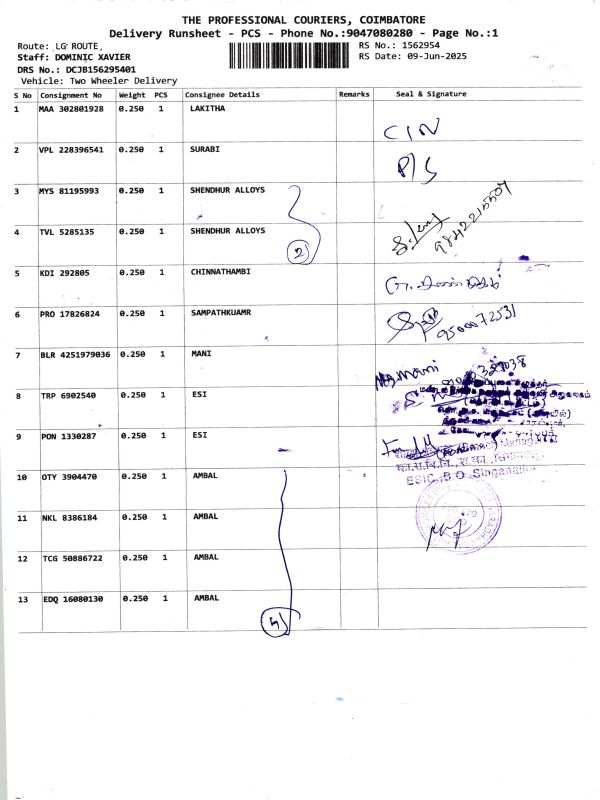 THE PROFESSIONAL COURIERS, COIMBATORE
Delivery Runsheet - PCS - Phone No.:9047080280 - Page No.:1
Route: LG ROUTE,
RS No.: 1562954
Staff: DOMINIC XAVIER
RS Date: 09-Jun-2025
DRS No.: DCJB156295401
Vehicle: Two Wheeler Delivery
S No Consignment No Weight PCS Consignee Details Remarks Seal & Signature
1 MAA 302801928 0.250 1 LAKITHA
CIN
2 VPL 228396541 0.250 1 SURABI
P/S
3 MYS 81195993 0.250 1 SHENDHUR ALLOYS
9842215507
4 TVL 5285135 0.250 1 SHENDHUR ALLOYS
2
5 KDI 292805 0.250 1 CHINNATHAMBI
6 PRO 17826824 0.250 1 SAMPATHKUAMR
9500072531
7 BLR 4251979036 0.250 1 MANI
8 TRP 6902540 0.250 1 ESI
9 PON 1330287 0.250 1 ESI
ESIC, B.O. Singanallur
10 OTY 3904470 0.250 1 AMBAL
11 NKL 8386184 0.250 1 AMBAL
12 TCG 50886722 0.250 1 AMBAL
13 EDQ 16080130 0.250 1 AMBAL